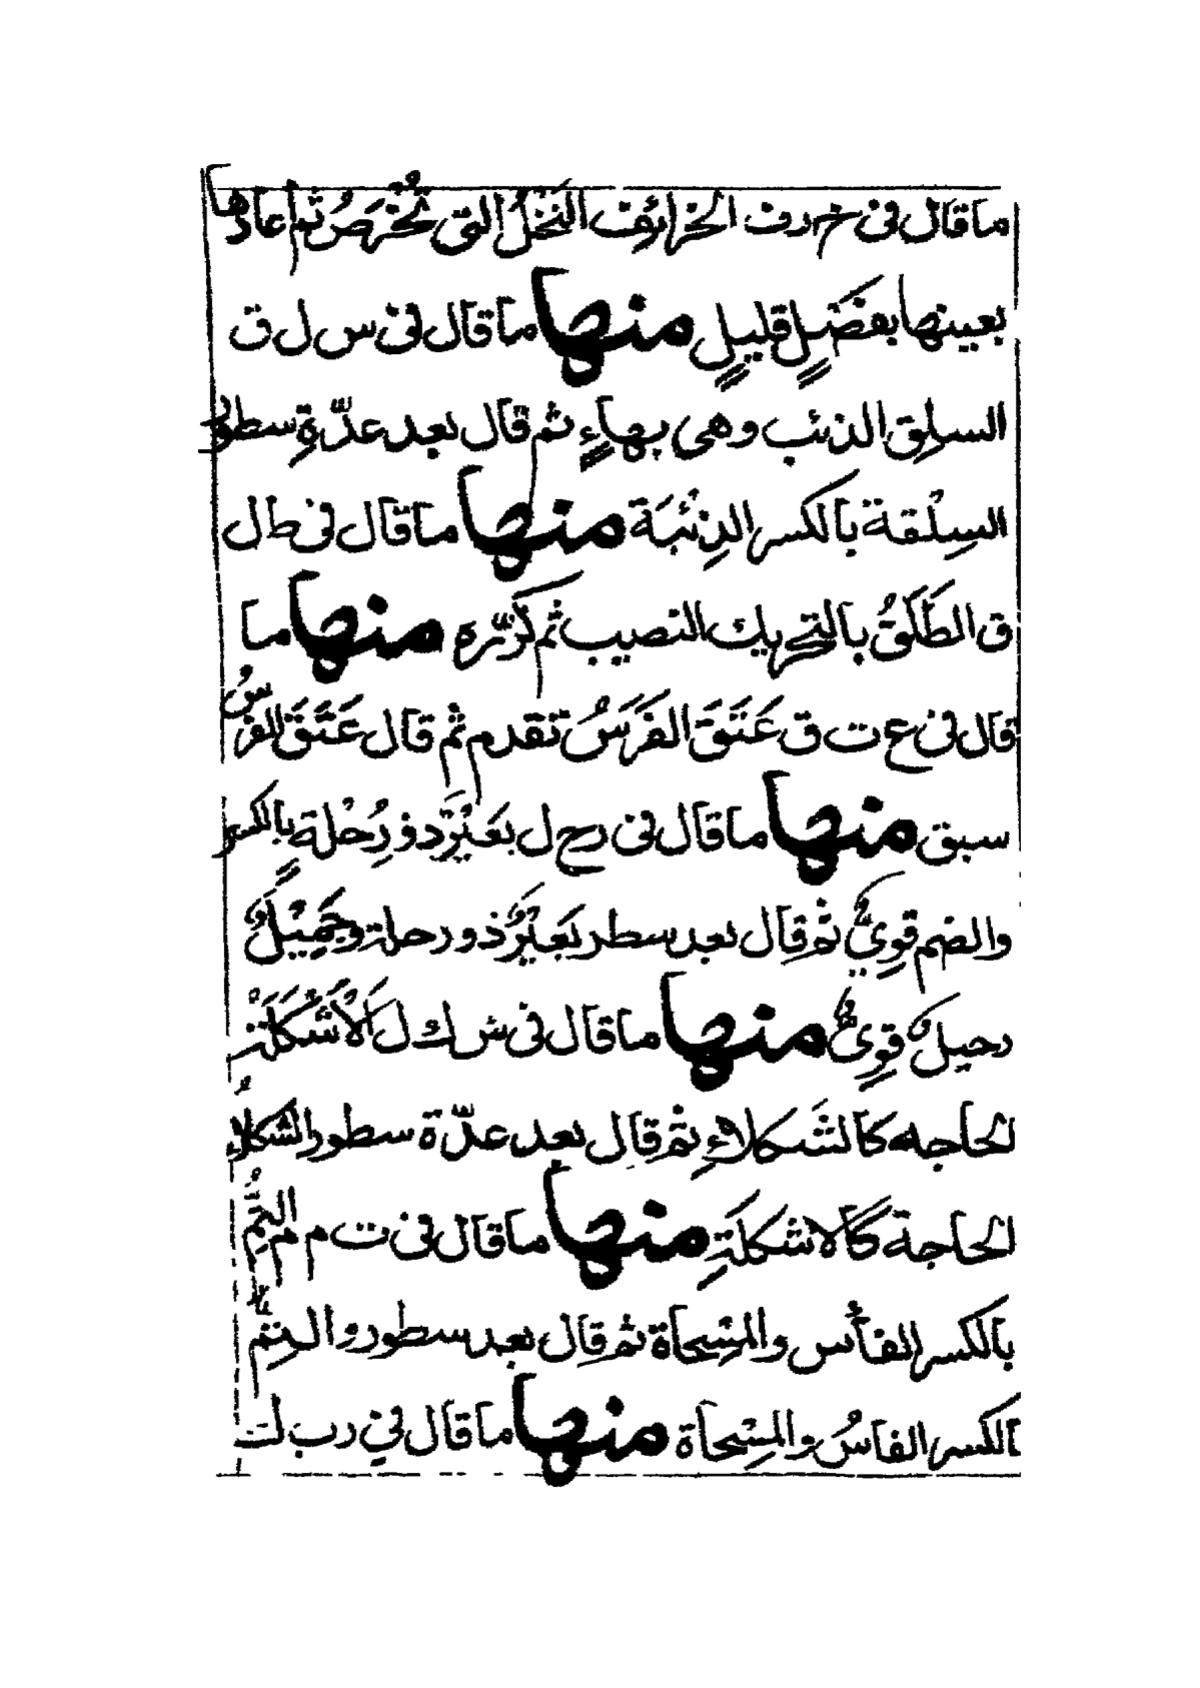 ما قال فى خ ر ف الخرائف النخل التى تُخْرَصُ ثم أعادها
بعينها بفضلٍ قليلٍ منها ما قال فى س ل ق
السلق الذئب وهى بهاءٍ ثم قال بعد عدّةِ سطور
السِلْقة بالكسر الذِئبَة منها ما قال فى ط ل
ق الطَلَقُ بالتحريك النصيب ثم كرّره منها ما
قال فى ع ت ق عَتَقَ الفَرَسُ تقدم ثم قال عَتَقَ الفرسُ
سبق منها ما قال فى ر ح ل بعَيْرٌ ذو رُحْلة بالكسر
والضم قوِىٌّ ثم قال بعد سطر بَعَيْرٌ ذو رحلة وجَمِيْلٌ
رحيلٌ قوِىٌّ منها ما قال فى ش ك ل اَلاْشْكَلَة
الحاجه كالشَكلاءِ ثم قال بعد عدّة سطور الشكلاءُ
الحاجة كالاشكلَةِ منها ما قال فى ت م م التِمُّ
بالكسر الفأس والمِسْحاة ثم قال بعد سطور والتِمّ
بالكسر الفاسُ والمِسْحاة منها ما قال في ر ب ل ت